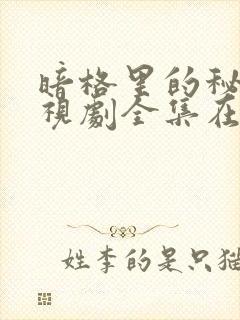 暗格里的秘
视剧全集在
姓李的是只猫